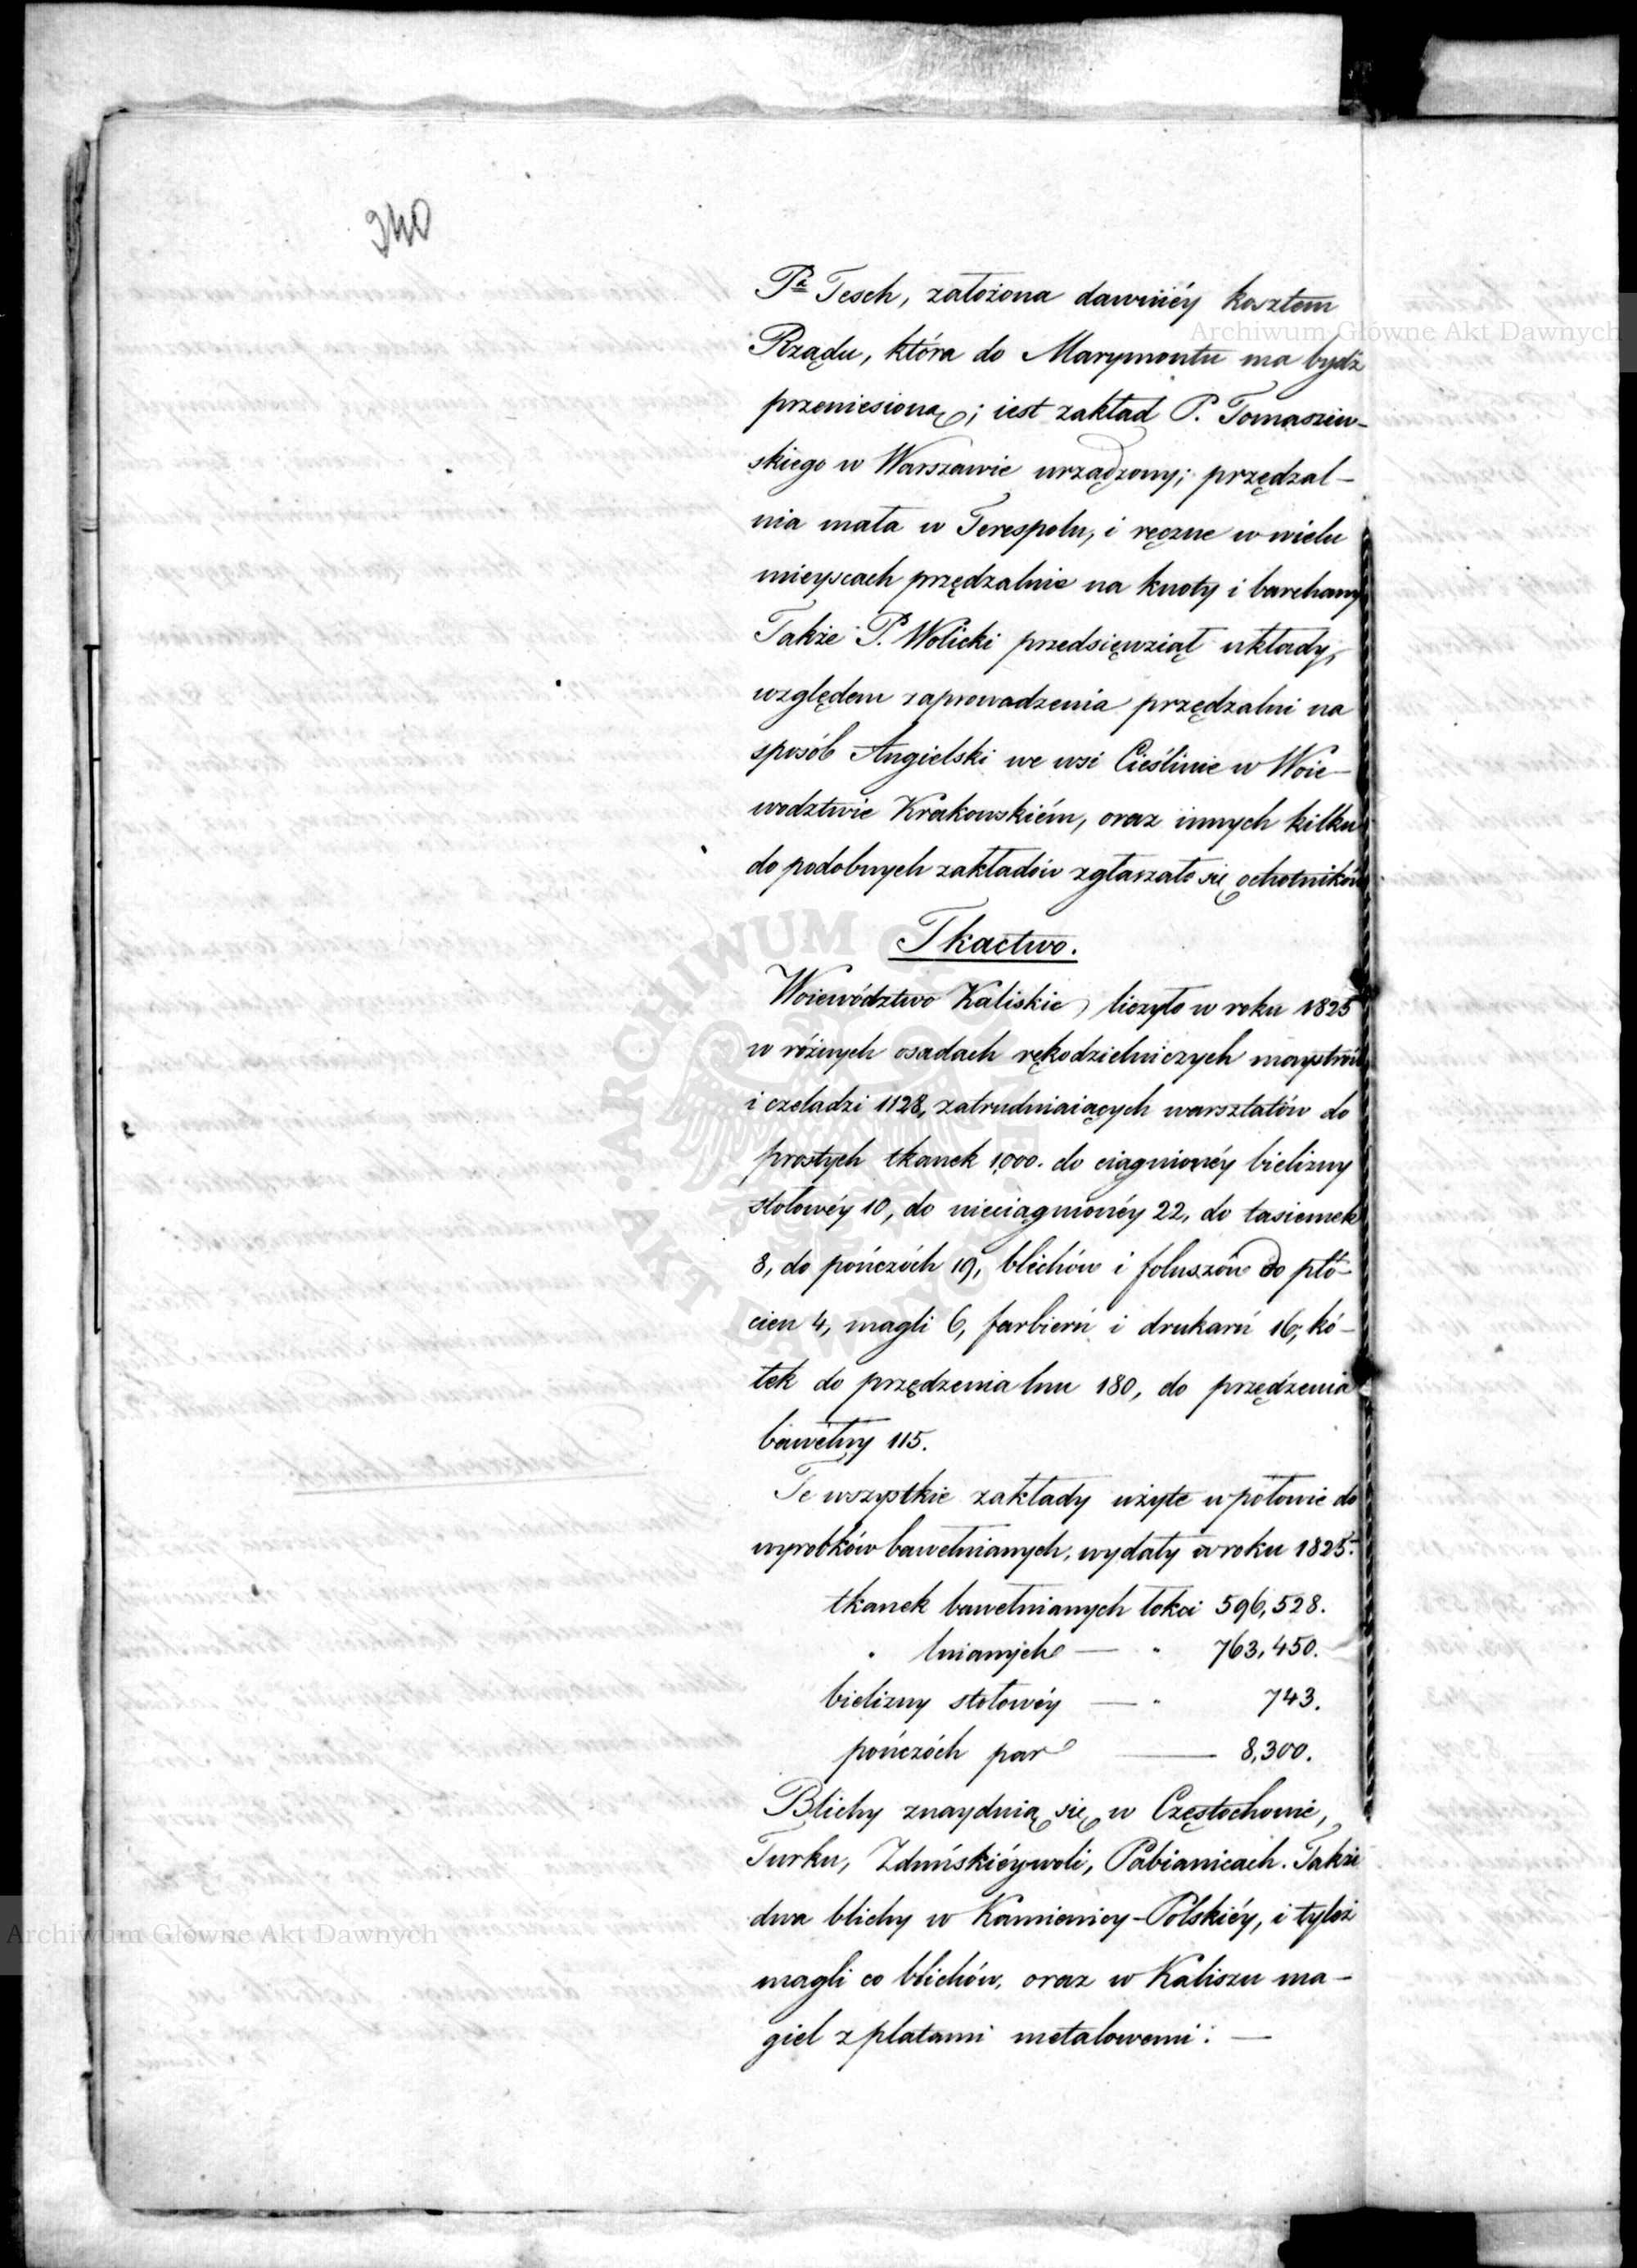 940
Pa Tesch, założona dawniéy kosztem
Archiwum Główne Akt Dawnych
Rządu, która do Marymontu ma bydź
przeniesioną; iest zakład P. Tomaszew-
skiego w Warszawie urządzony; przędzal-
nia mała w Terespolu, i ręczne w wielu
mieyscach przędzalnie na knoty i barchany
Także P. Wolicki przedsięwziął układy,
względem zaprowadzenia przędzalni na
sposób Angielski we wsi Cieślinie w Woie-
wodztwie Krakowskiém, oraz innych kilku
do podobnych zakładów zgłaszało się ochotników
Tkactwo.
Woiewództwo Kaliskie, liczyło w roku 1825
w różnych osadach rękodzielniczych maystrów
i czeladzi 1128, zatrudniaiących warsztatów do
prostych tkanek 1,000. do ciągnionéy bielizny
stołowéy 10, do nieciągnionéy 22, do tasiemek
8, do pończóch 19, blichów i foluszów do płó-
cien 4, magli 6, farbierń i drukarń 16, kó-
łek do przędzenia lnu 180, do przędzenia
bawełny 115.
Te wszystkie zakłady użyte w połowie do
wyrobków bawełnianych, wydały w roku 1825.
tkanek bawełnianych łokci 596,528.
" lnianych — " 763,450.
bielizny stołowéy — " 743.
pończóch par — 8,300.
Blichy znayduią się w Częstochowie,
Turku, Zduńskiéywoli, Pabianicach. Także
dwa blichy w Kamienicy-Polskiéy, i tyleż
Archiwum Główne Akt Dawnych
magli co blichów, oraz w Kaliszu ma-
giel z platami metalowemi. —
ARCHIWUM GŁÓWNE AKT DAWNYCH